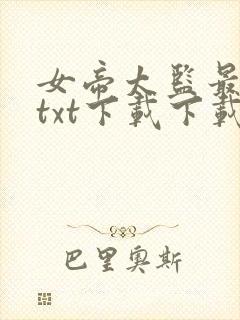 女帝大監最
txt下載下載
巴里奧斯